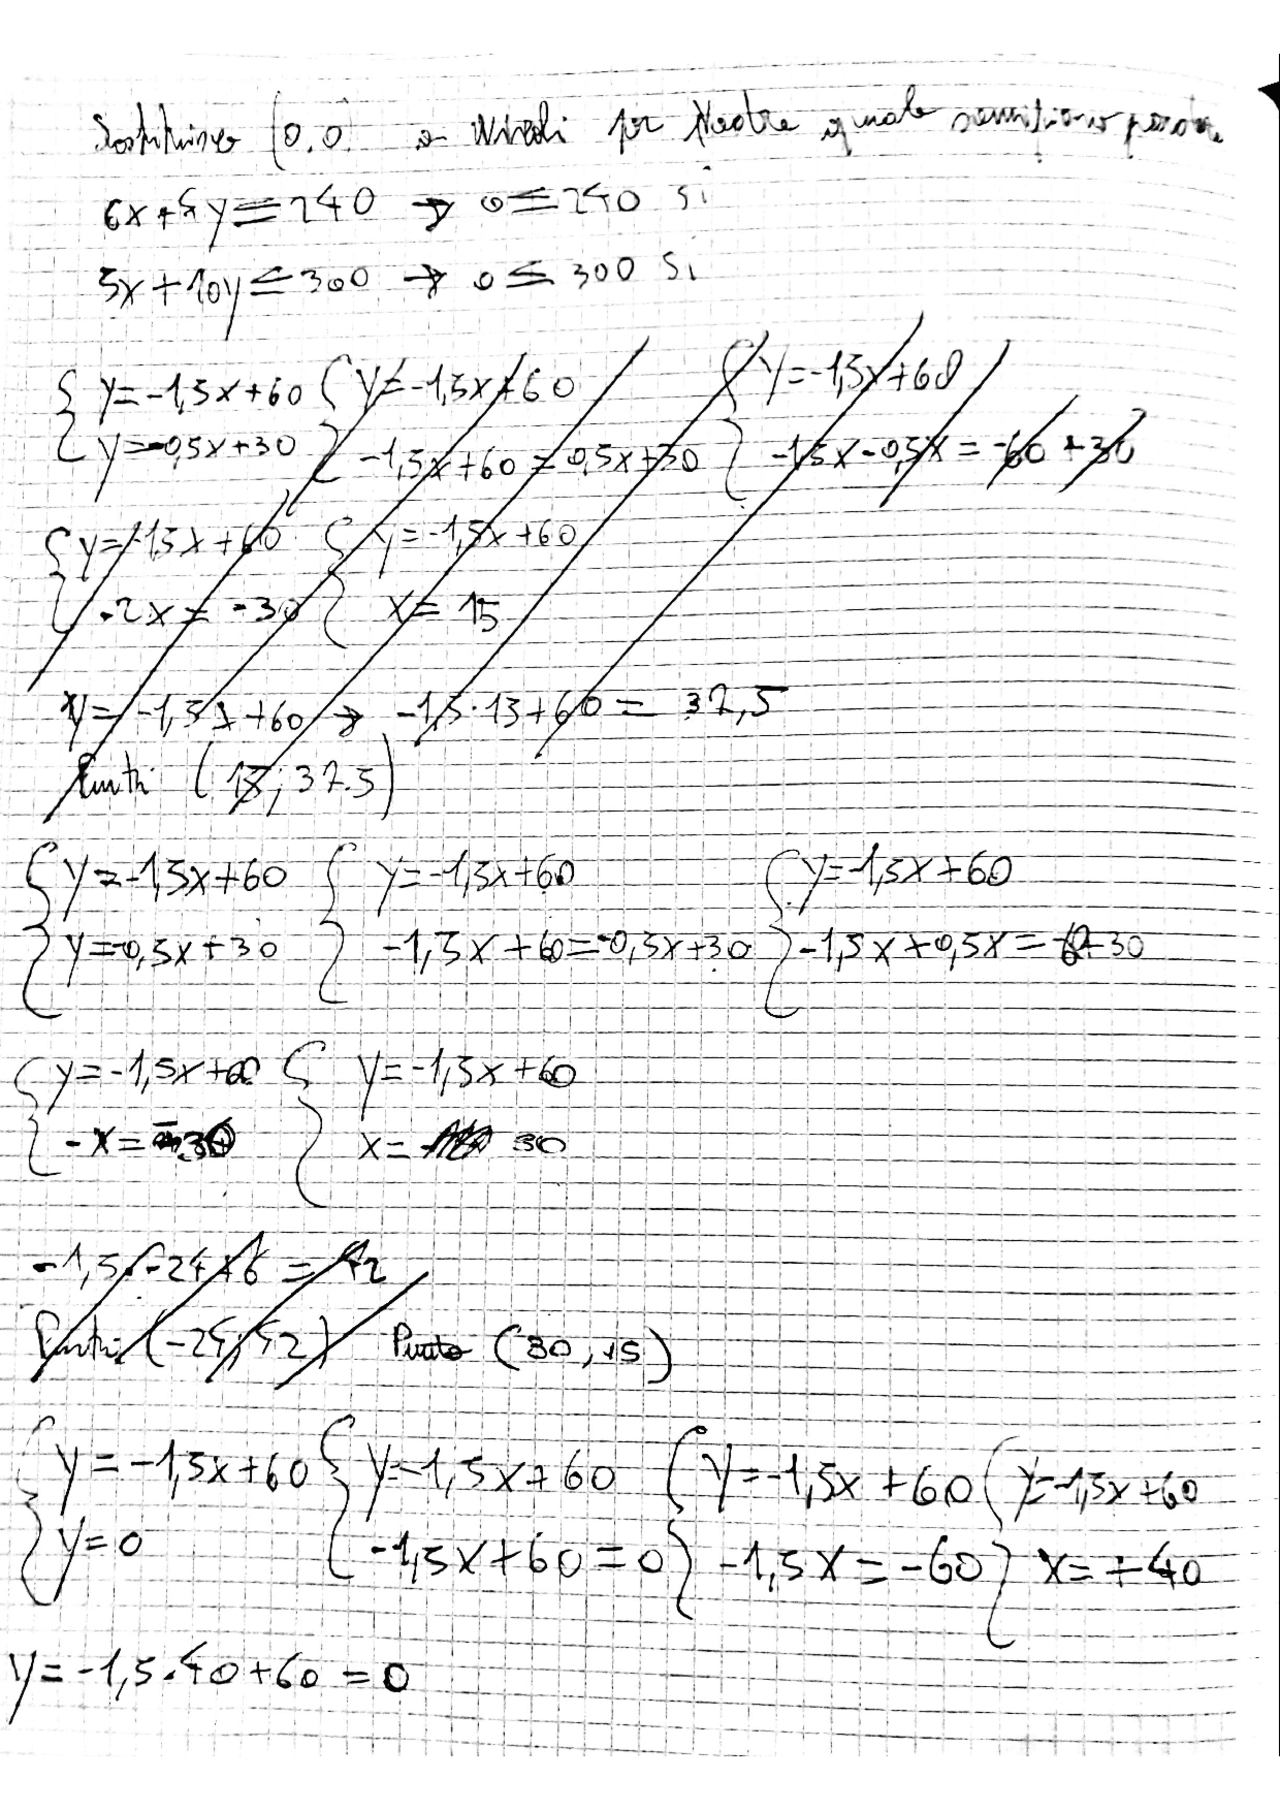 Sostituisco (0,0) a vincoli per vedere quale semipiano prendere
6x+4y≤240 → 0≤240 si
5x+10y≤300 → 0≤300 Si
{y=-1,5x+60 {y=-1,5x+60 {y=-1,5x+60
{y=-0,5x+30 {-1,5x+60=0,5x+30 {-1,5x-0,5x=-60+30
{y=-1,5x+60 {y=-1,5x+60
{-2x=-30 {x=15
y=-1,5x+60 → -1,5·15+60=37,5
Punti (15; 37.5)
{y=-1,5x+60 {y=-1,5x+60 {y=-1,5x+60
{y=-0,5x+30 {-1,5x+60=-0,5x+30 {-1,5x+0,5x=-60+30
{y=-1,5x+60 {y=-1,5x+60
{-x=-30 {x= 30
-1,5·-24+6=42
Punti (-24; 42) Punto (30, 15)
{y=-1,5x+60 {y=-1,5x+60 {y=-1,5x+60 {y=-1,5x+60
{y=0 {-1,5x+60=0 {-1,5x=-60 {x=+40
y=-1,5·40+60=0